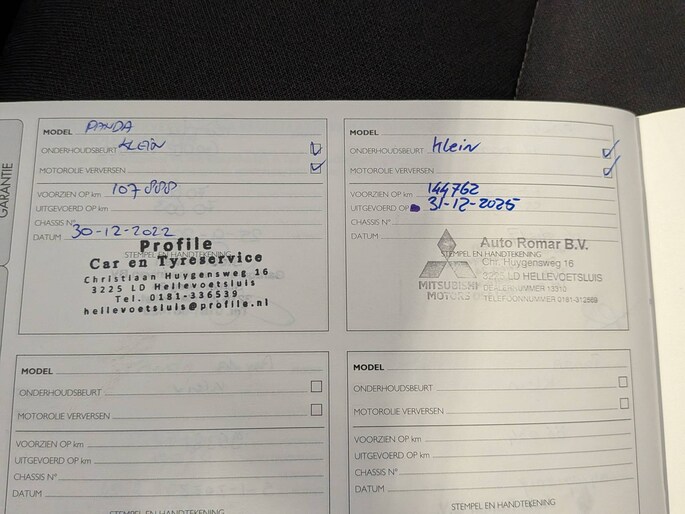 GARANTIE
MODEL PANDA
ONDERHOUDSBEURT KLEIN
MOTOROLIE VERVERSEN
VOORZIEN OP km 107 888
UITGEVOERD OP km
CHASSIS N°
DATUM 30-12-2022
STEMPEL EN HANDTEKENING
Profile
Car en Tyreservice
Christiaan Huygensweg 16
3225 LD Hellevoetsluis
Tel. 0181-336539
hellevoetsluis@profile.nl
MODEL
ONDERHOUDSBEURT Klein
MOTOROLIE VERVERSEN
VOORZIEN OP km 144762
UITGEVOERD OP 31-12-2025
CHASSIS N°
DATUM
STEMPEL EN HANDTEKENING
Auto Romar B.V.
Chr. Huygensweg 16
3225 LD HELLEVOETSLUIS
MITSUBISHI DEALERNUMMER 13310
MOTORS TELEFOONNUMMER 0181-312669
MODEL
ONDERHOUDSBEURT
MOTOROLIE VERVERSEN
VOORZIEN OP km
UITGEVOERD OP km
CHASSIS N°
DATUM
STEMPEL EN HANDTEKENING
MODEL
ONDERHOUDSBEURT
MOTOROLIE VERVERSEN
VOORZIEN OP km
UITGEVOERD OP km
CHASSIS N°
DATUM
STEMPEL EN HANDTEKENING